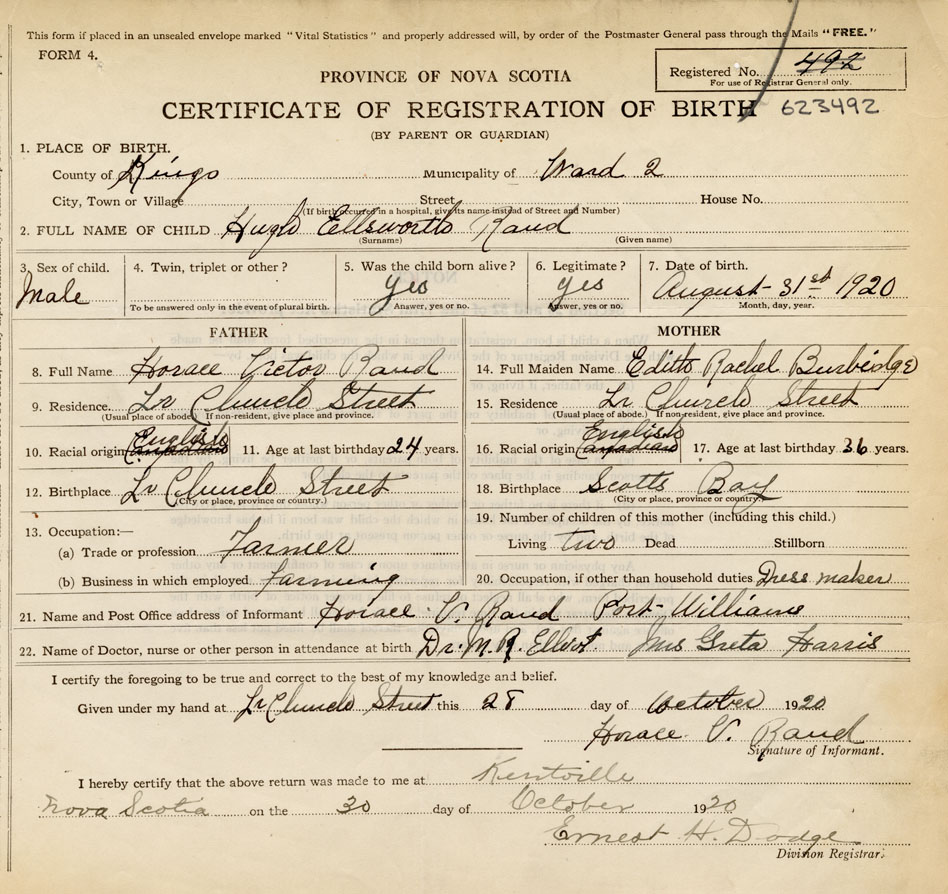 This form if placed in an unsealed envelope marked "Vital Statistics" and properly addressed will, by order of the Postmaster General pass through the Mails "FREE."
FORM 4.
Registered No. 492
For use of Registrar General only.
PROVINCE OF NOVA SCOTIA
CERTIFICATE OF REGISTRATION OF BIRTH 623492
(BY PARENT OR GUARDIAN)
1. PLACE OF BIRTH.
County of Kings Municipality of Ward 2
City, Town or Village Street House No.
(If birth occurred in a hospital, give its name instead of Street and Number)
2. FULL NAME OF CHILD Hugh Ellsworth Rand
(Surname) (Given name)
3. Sex of child. Male
4. Twin, triplet or other?
To be answered only in the event of plural birth.
5. Was the child born alive? yes
Answer, yes or no.
6. Legitimate? yes
Answer, yes or no.
7. Date of birth. August 31st 1920
Month, day, year.
FATHER
8. Full Name Horace Victor Rand
9. Residence. Lr Church Street
(Usual place of abode.) If non-resident, give place and province.
10. Racial origin English Canadian 11. Age at last birthday 24 years.
12. Birthplace Lr Church Street
(City or place, province or country.)
13. Occupation:—
(a) Trade or profession Farmer
(b) Business in which employed farming
MOTHER
14. Full Maiden Name Edith Rachel Burbidge
15. Residence Lr Church Street
(Usual place of abode.) If non-resident, give place and province.
16. Racial origin English Canadian 17. Age at last birthday 36 years.
18. Birthplace Scotts Bay
(City or place, province or country.)
19. Number of children of this mother (including this child.)
Living two Dead Stillborn
20. Occupation, if other than household duties Dress maker
21. Name and Post Office address of Informant Horace V. Rand Port Williams
22. Name of Doctor, nurse or other person in attendance at birth Dr. M. R. Elliott. Mrs Greta Harris
I certify the foregoing to be true and correct to the best of my knowledge and belief.
Given under my hand at Lr Church Street this 28 day of October 1920
Horace V. Rand
Signature of Informant.
I hereby certify that the above return was made to me at Kentville
Nova Scotia on the 30 day of October 1920
Ernest H. Dodge
Division Registrar.